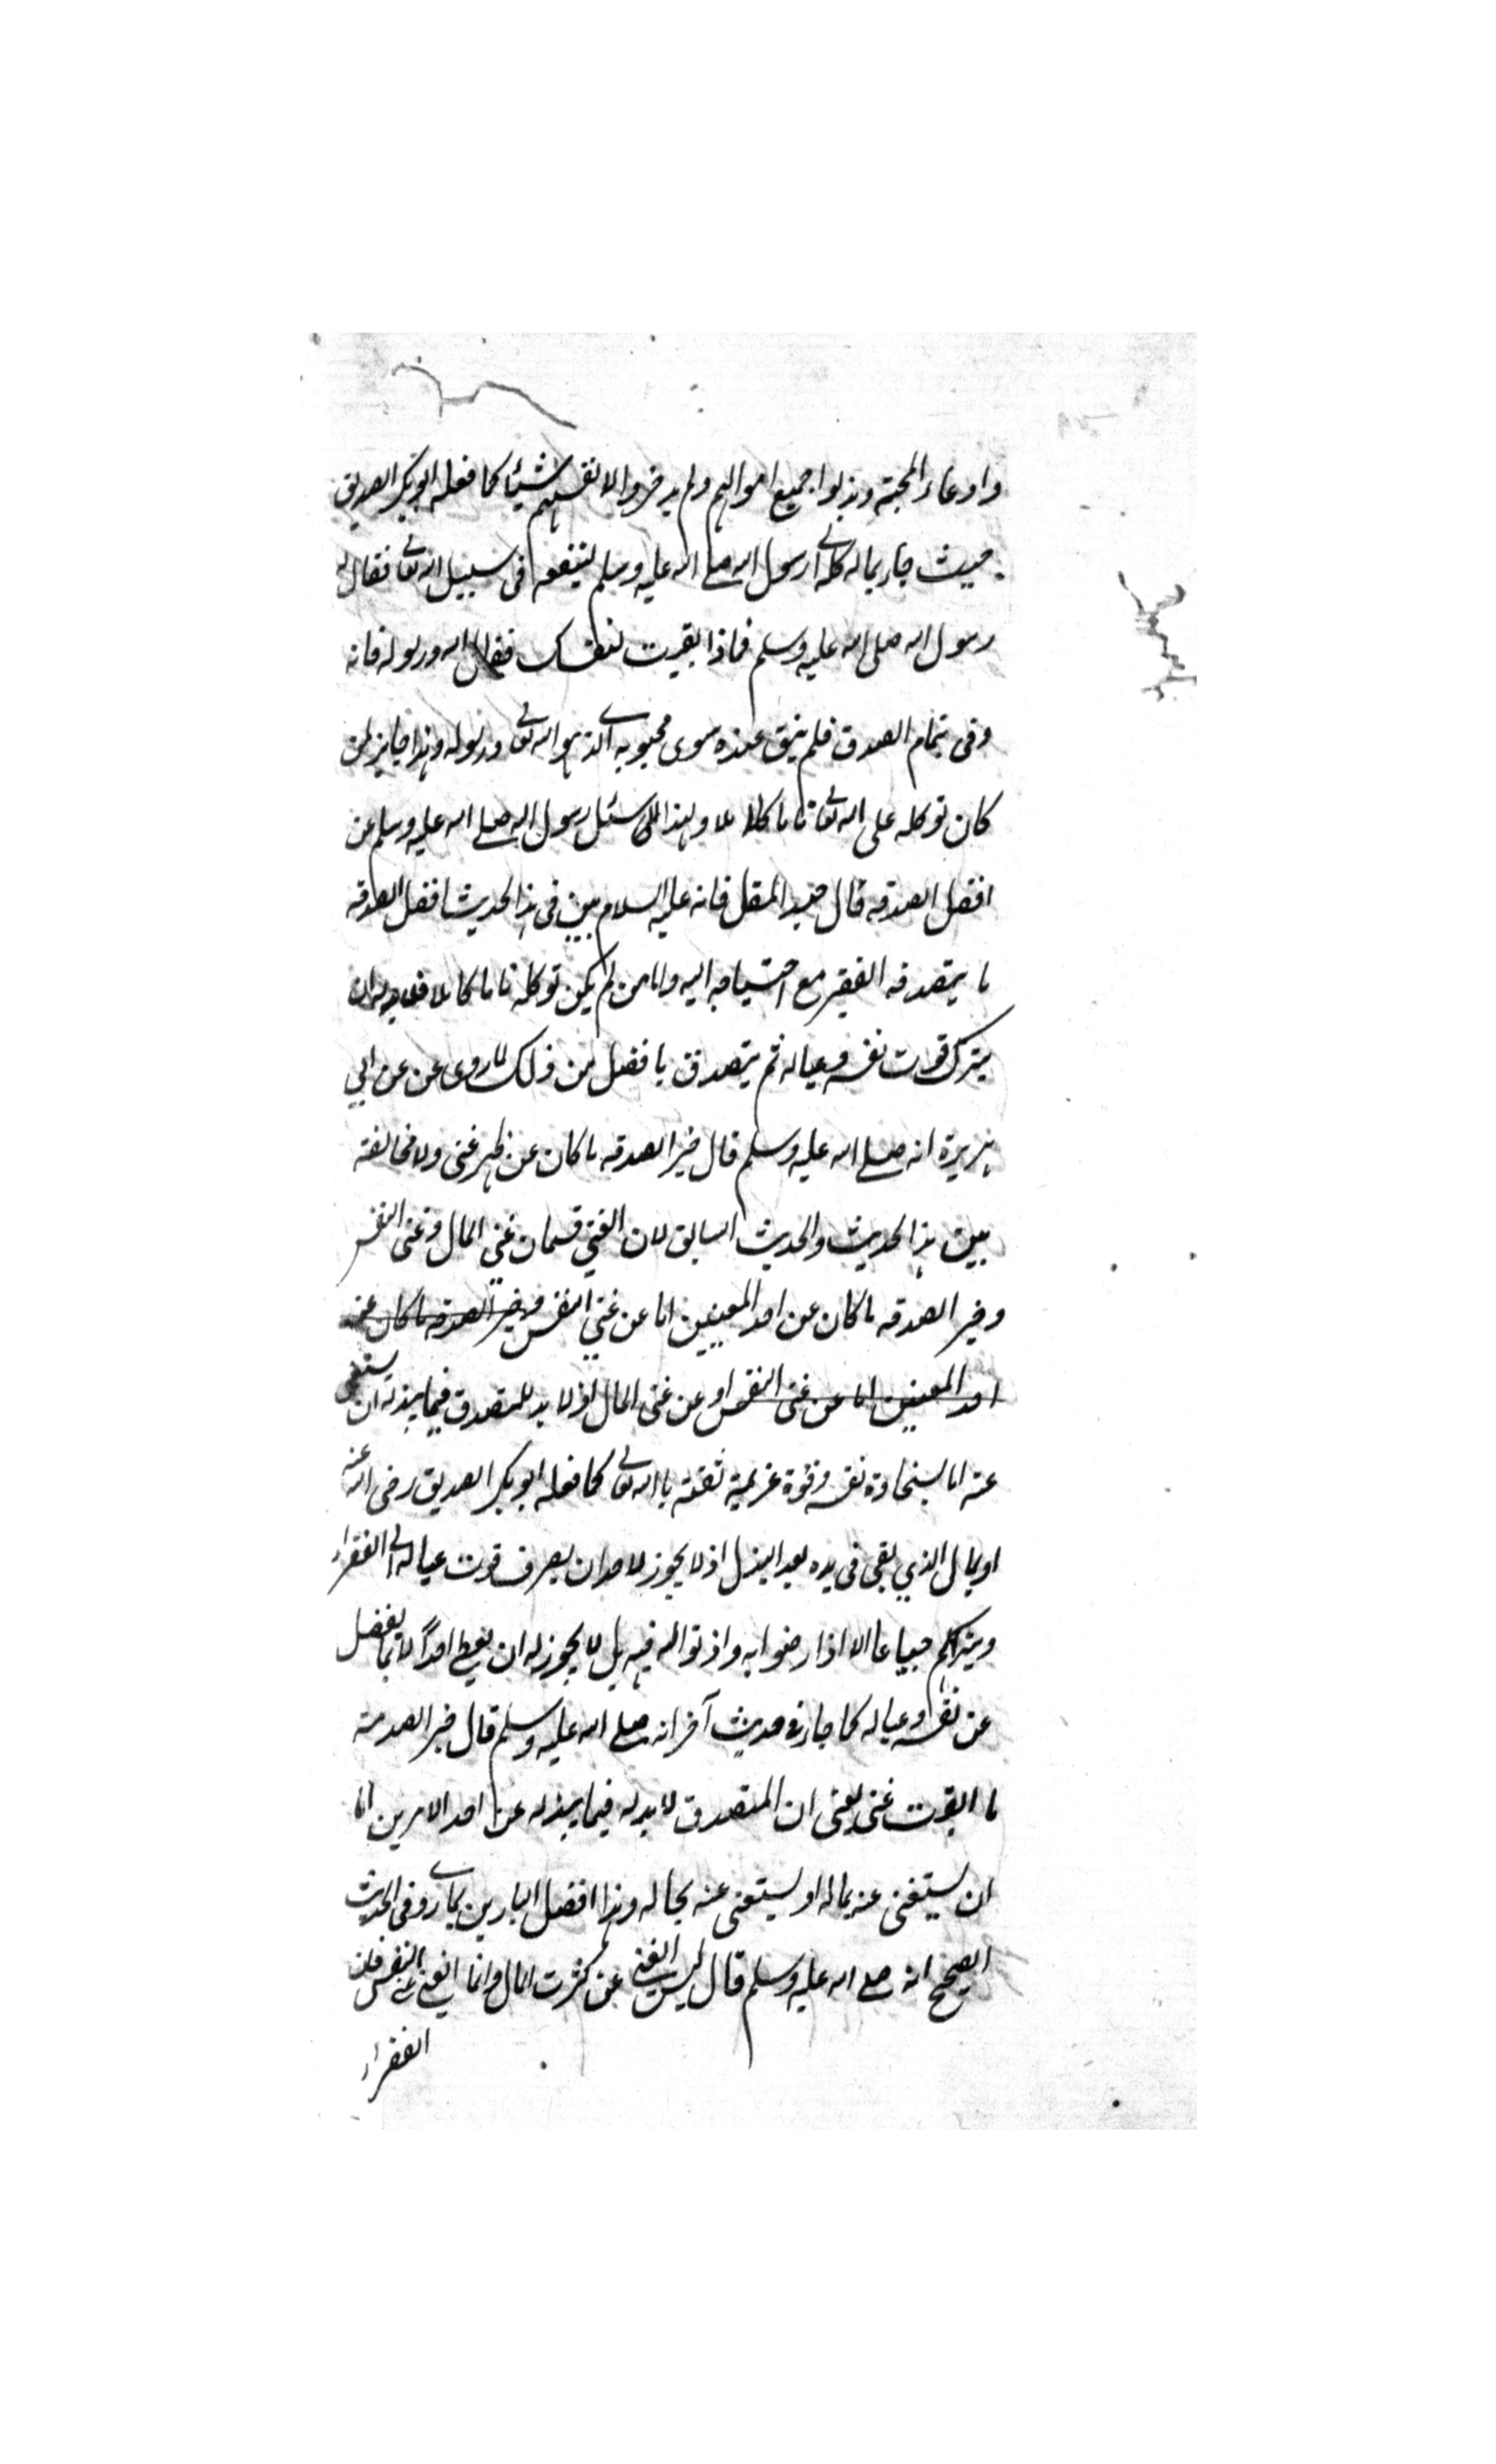 وادعاء المحبة وبذلوا جميع اموالهم ولم يدخروا لانفسهم شيئا كما فعله ابو بكر الصديق
حيث جاء بماله كله الى رسول الله صلى الله عليه وسلم لينفقه فى سبيل الله تعالى فقال له
رسول الله صلى الله عليه وسلم فماذا بقيت لنفسك فقال الله ورسوله فانه
وفى بتمام الصدق فلم يبق عنده سوى محبوبه الذى هو الله تعالى ورسوله وهذا جايز لمن
كان توكله على الله تعالى تاما كاملا ولهذا لما سئل رسول الله صلى الله عليه وسلم عن
افضل الصدقه قال جهد المقل فانه عليه السلام بين فى هذا الحديث افضل الصدقه
ما يتصدقه الفقير مع احتياجه اليه واما من لم يكن توكله تاما كاملا فلابد له ان
يترك قوت نفسه وعياله ثم يتصدق بافضل من ذلك لما روى عن عن ابي
هريرة انه صلى الله عليه وسلم قال خير الصدقه ما كان عن ظهر غنى ولا مخالفة
بين هذا الحديث والحديث السابق لان الغني قسمان غني المال وغنى النفس
وخير الصدقه ما كان عن احد المعنيين اما عن غني النفس وخير الصدقه ما كان عن
احد المعنيين اما عن غنى النفس او عن غنى المال اذ لا بد للمتصدق فيما يبذله ان يستغنى
عنه اما بسخاوة نفسه وقوة عزيمة ثقته باالله تعالى كما فعله ابو بكر الصديق رضى الله عنه
او بمال الذي بقى فى يده بعد البذل اذ لا يجوز لاحد ان يصرف قوت عياله الى الفقراء
ويتركهم جياعا الا اذا رضوا به واذنوا له فيه بل لا يجوز له ان يعطى احداً الا بما يفضل
عن نفسه وعياله كما جاء فى حديث آخر انه صلى الله عليه وسلم قال خير الصدقة
ما ابقت غنى يعنى ان المتصدق لا بد له فيما يبذله عن احد الامرين اما
ان يستغنى عنه بماله او يستغنى عنه بحاله وهذا افضل اليسارين كما روى فى الحديث
الصحيح انه صلى الله عليه وسلم قال ليس الغنى عن كثرت المال وانما الغنى غنى النفس فان
الفقراء